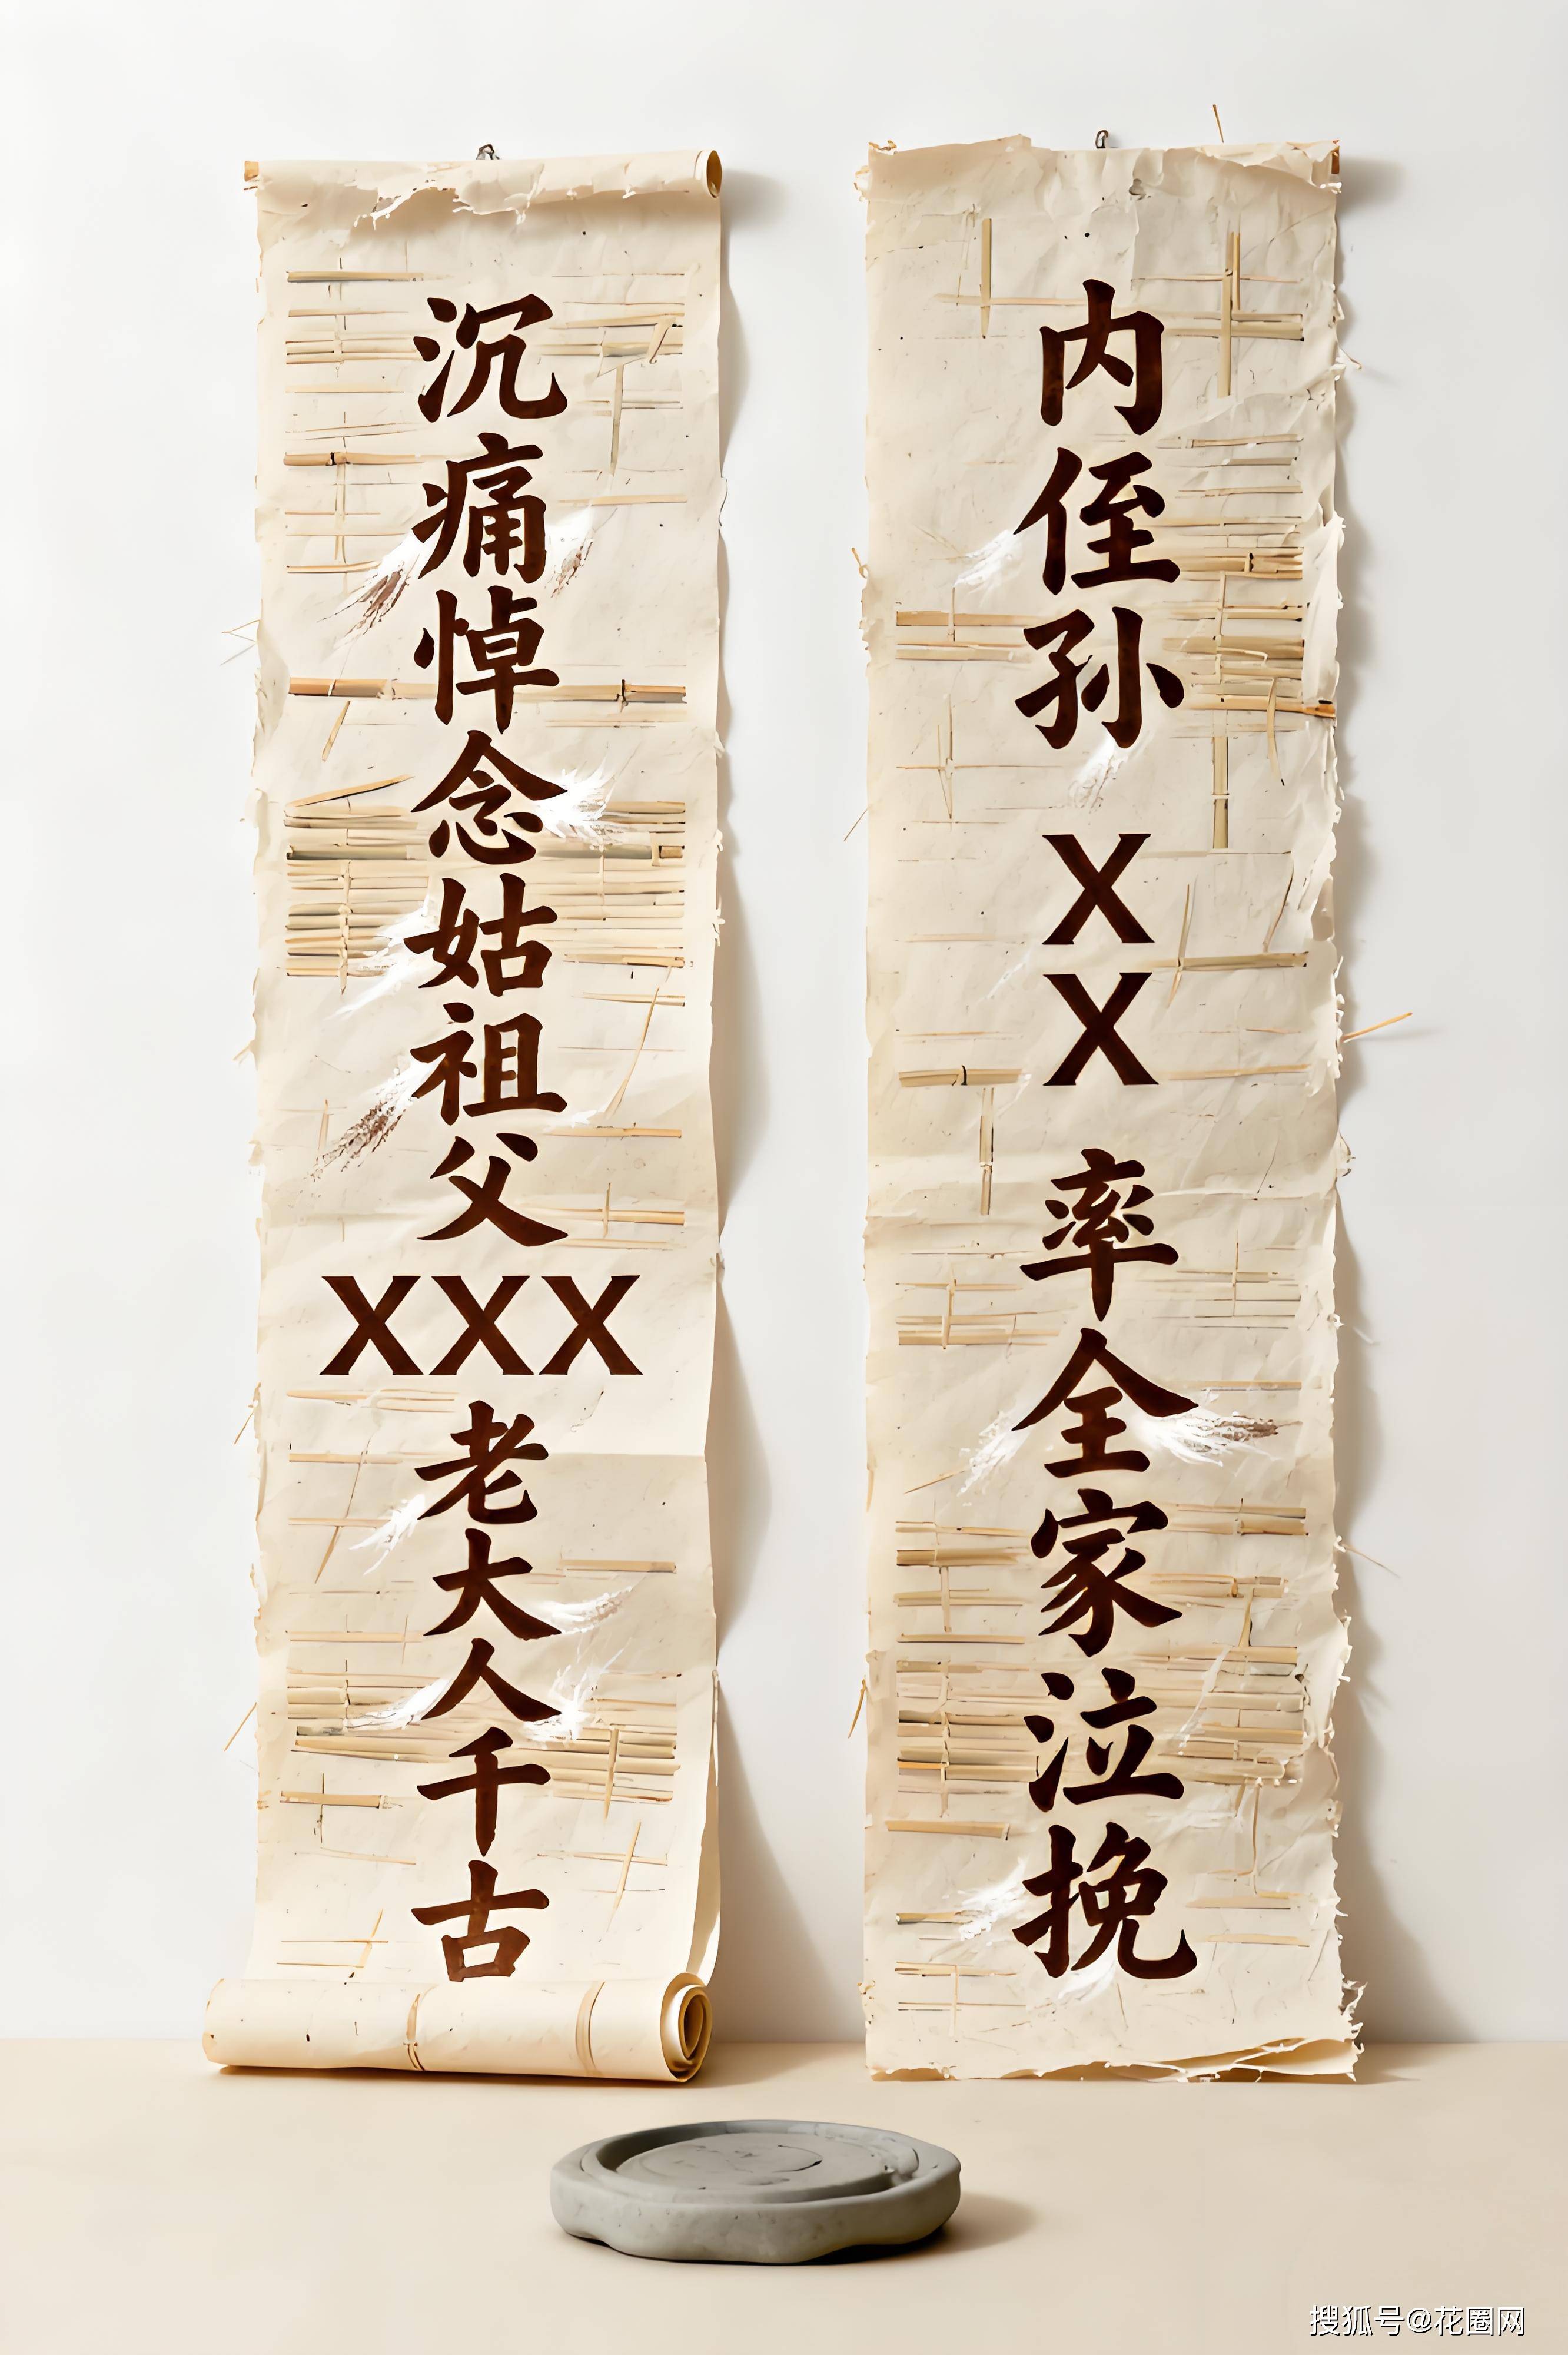 沉痛悼念姑祖父XXX老大人千古
内侄孙XX率全家泣挽
搜狐号@花圈网